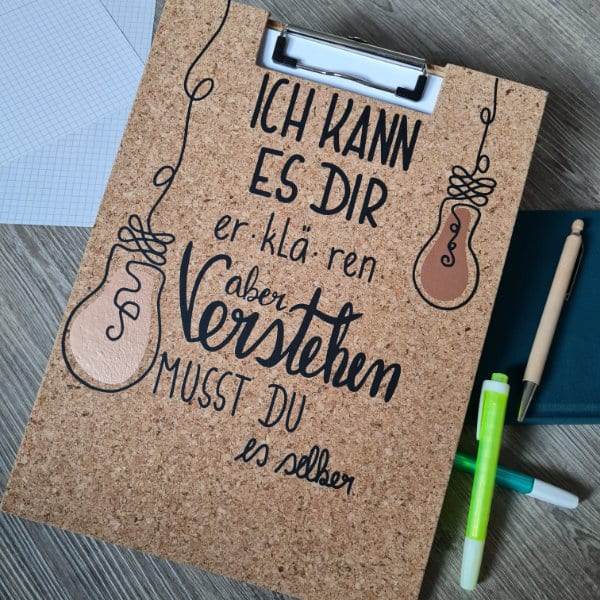 ICH KANN
ES DIR
er·klä·ren
aber
Verstehen
MUSST DU
es selber